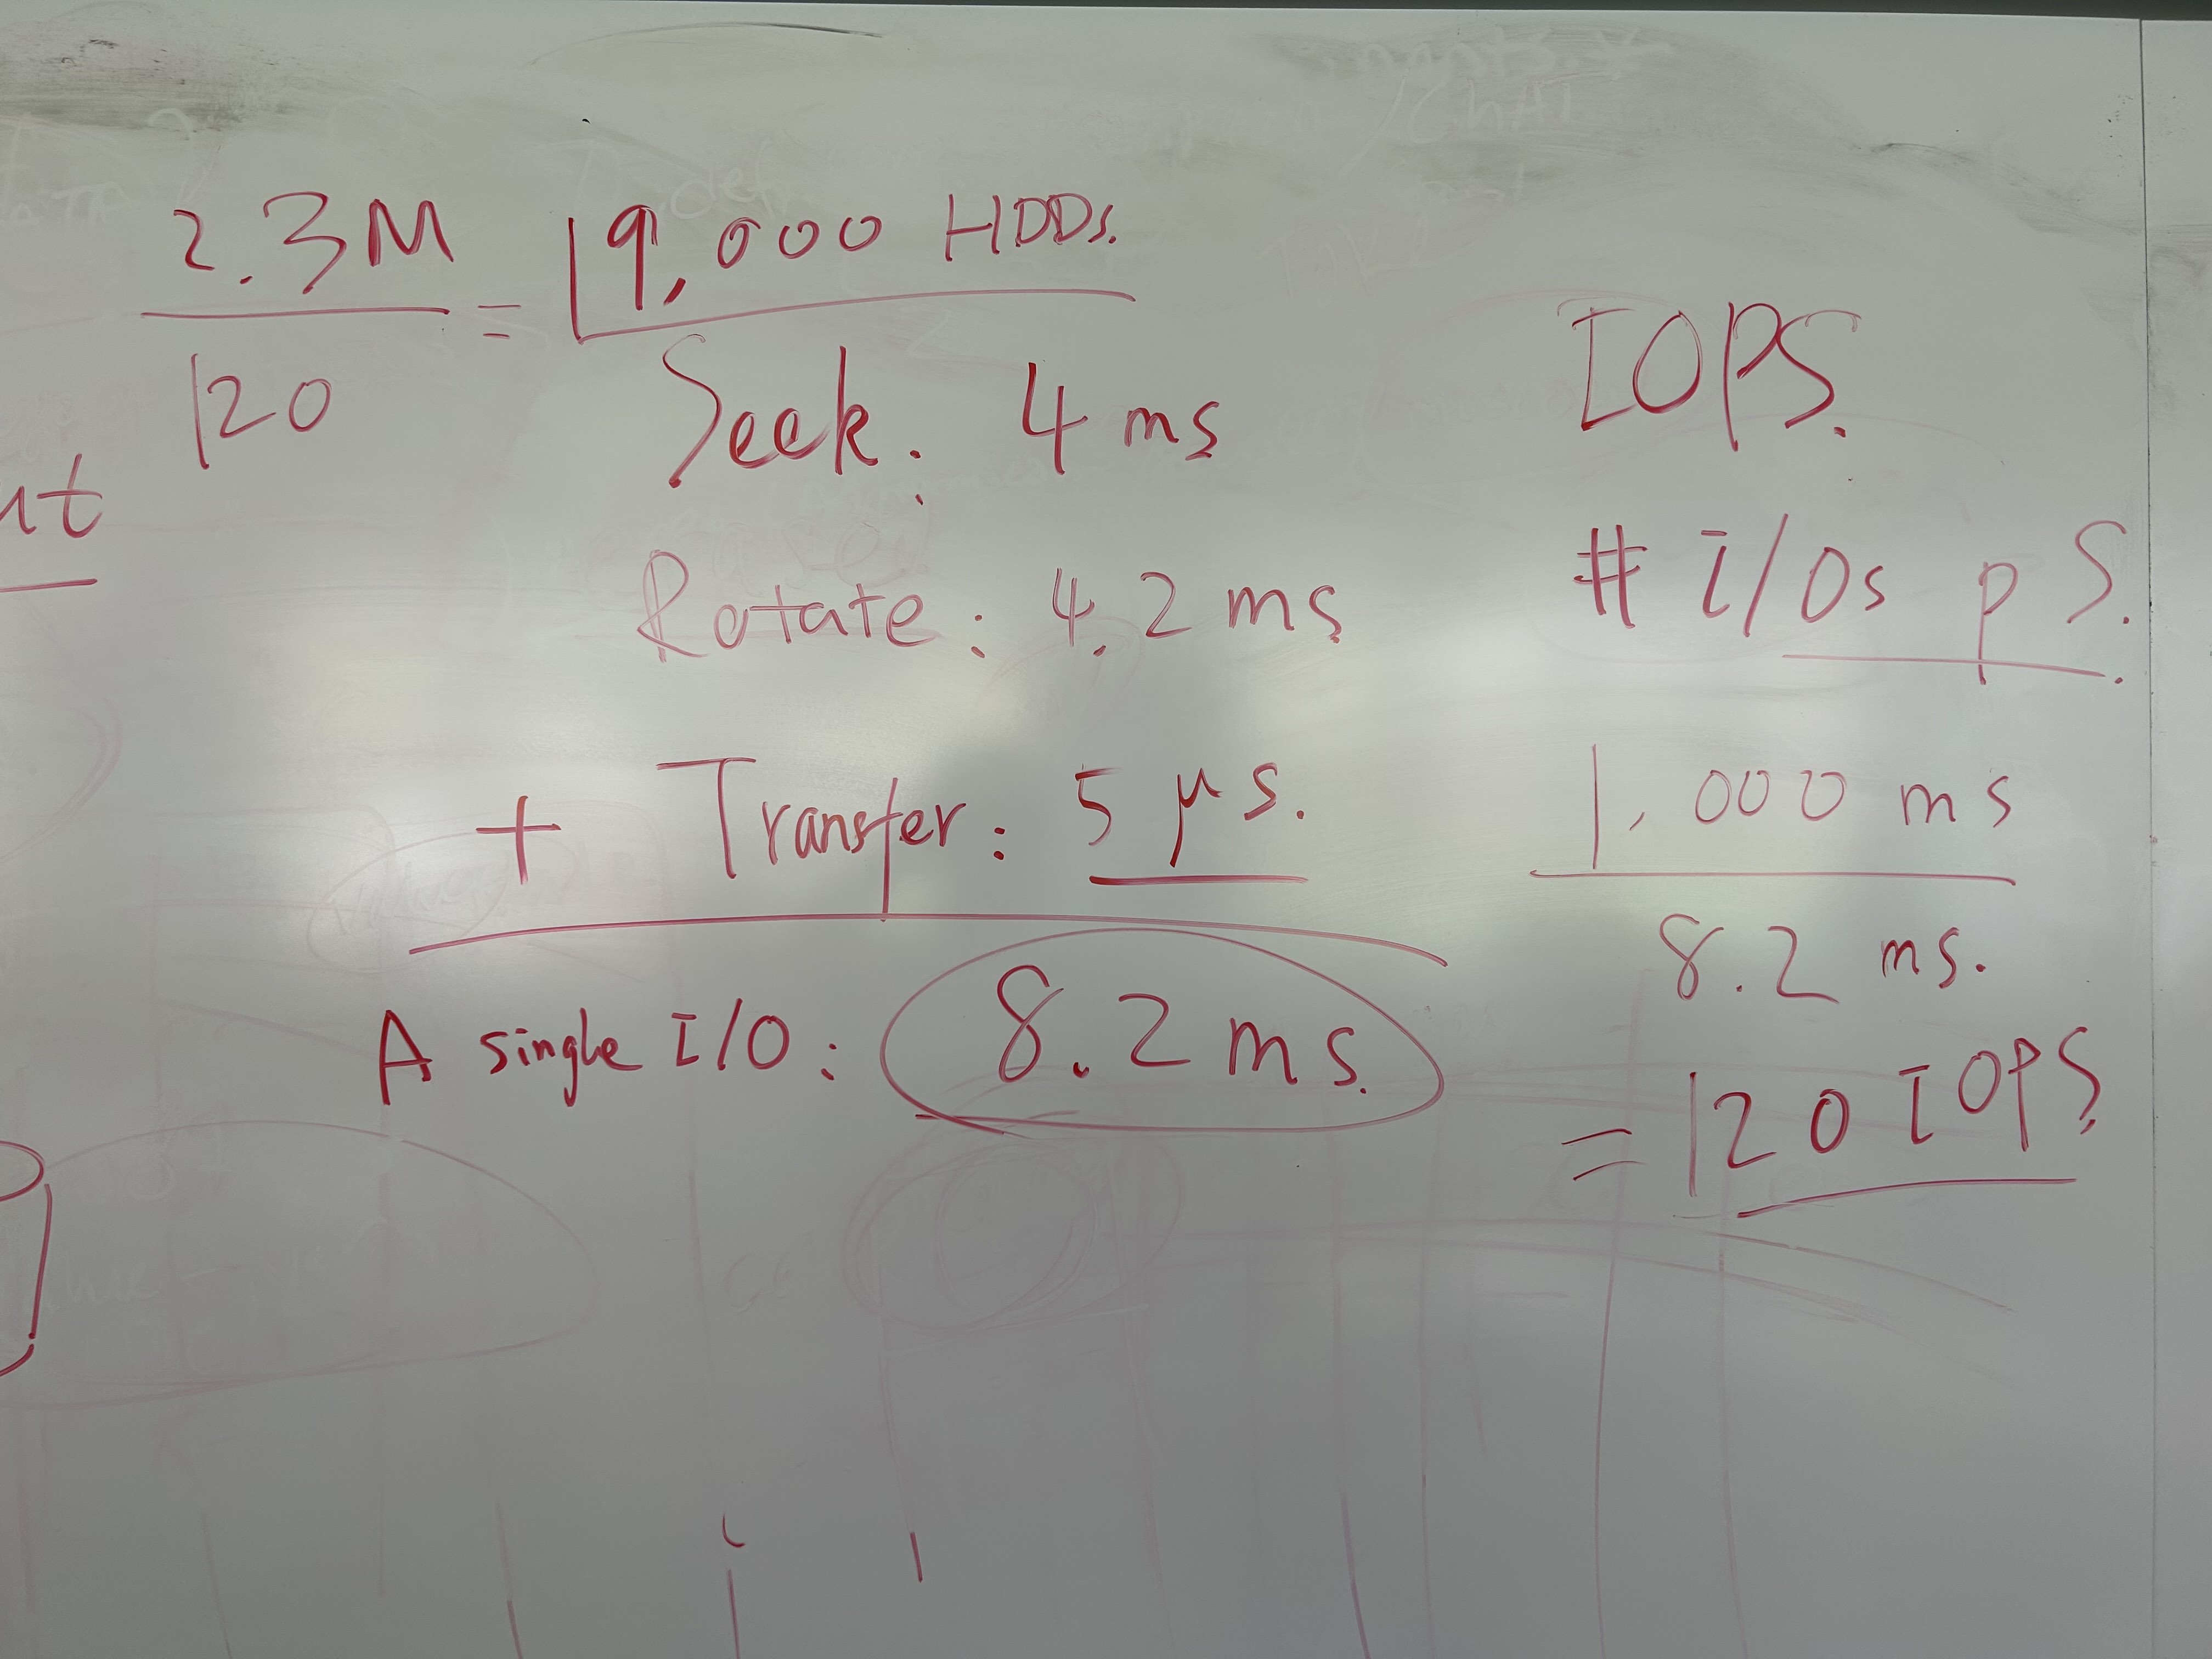 2.3M
120
= 19,000 HDDs.
Seek: 4 ms
Rotate: 4.2 ms
+ Transfer: 5 μs.
A single I/O: 8.2 ms.
IOPS.
# i/Os p S.
1,000 ms
8.2 ms.
= 120 IOPS